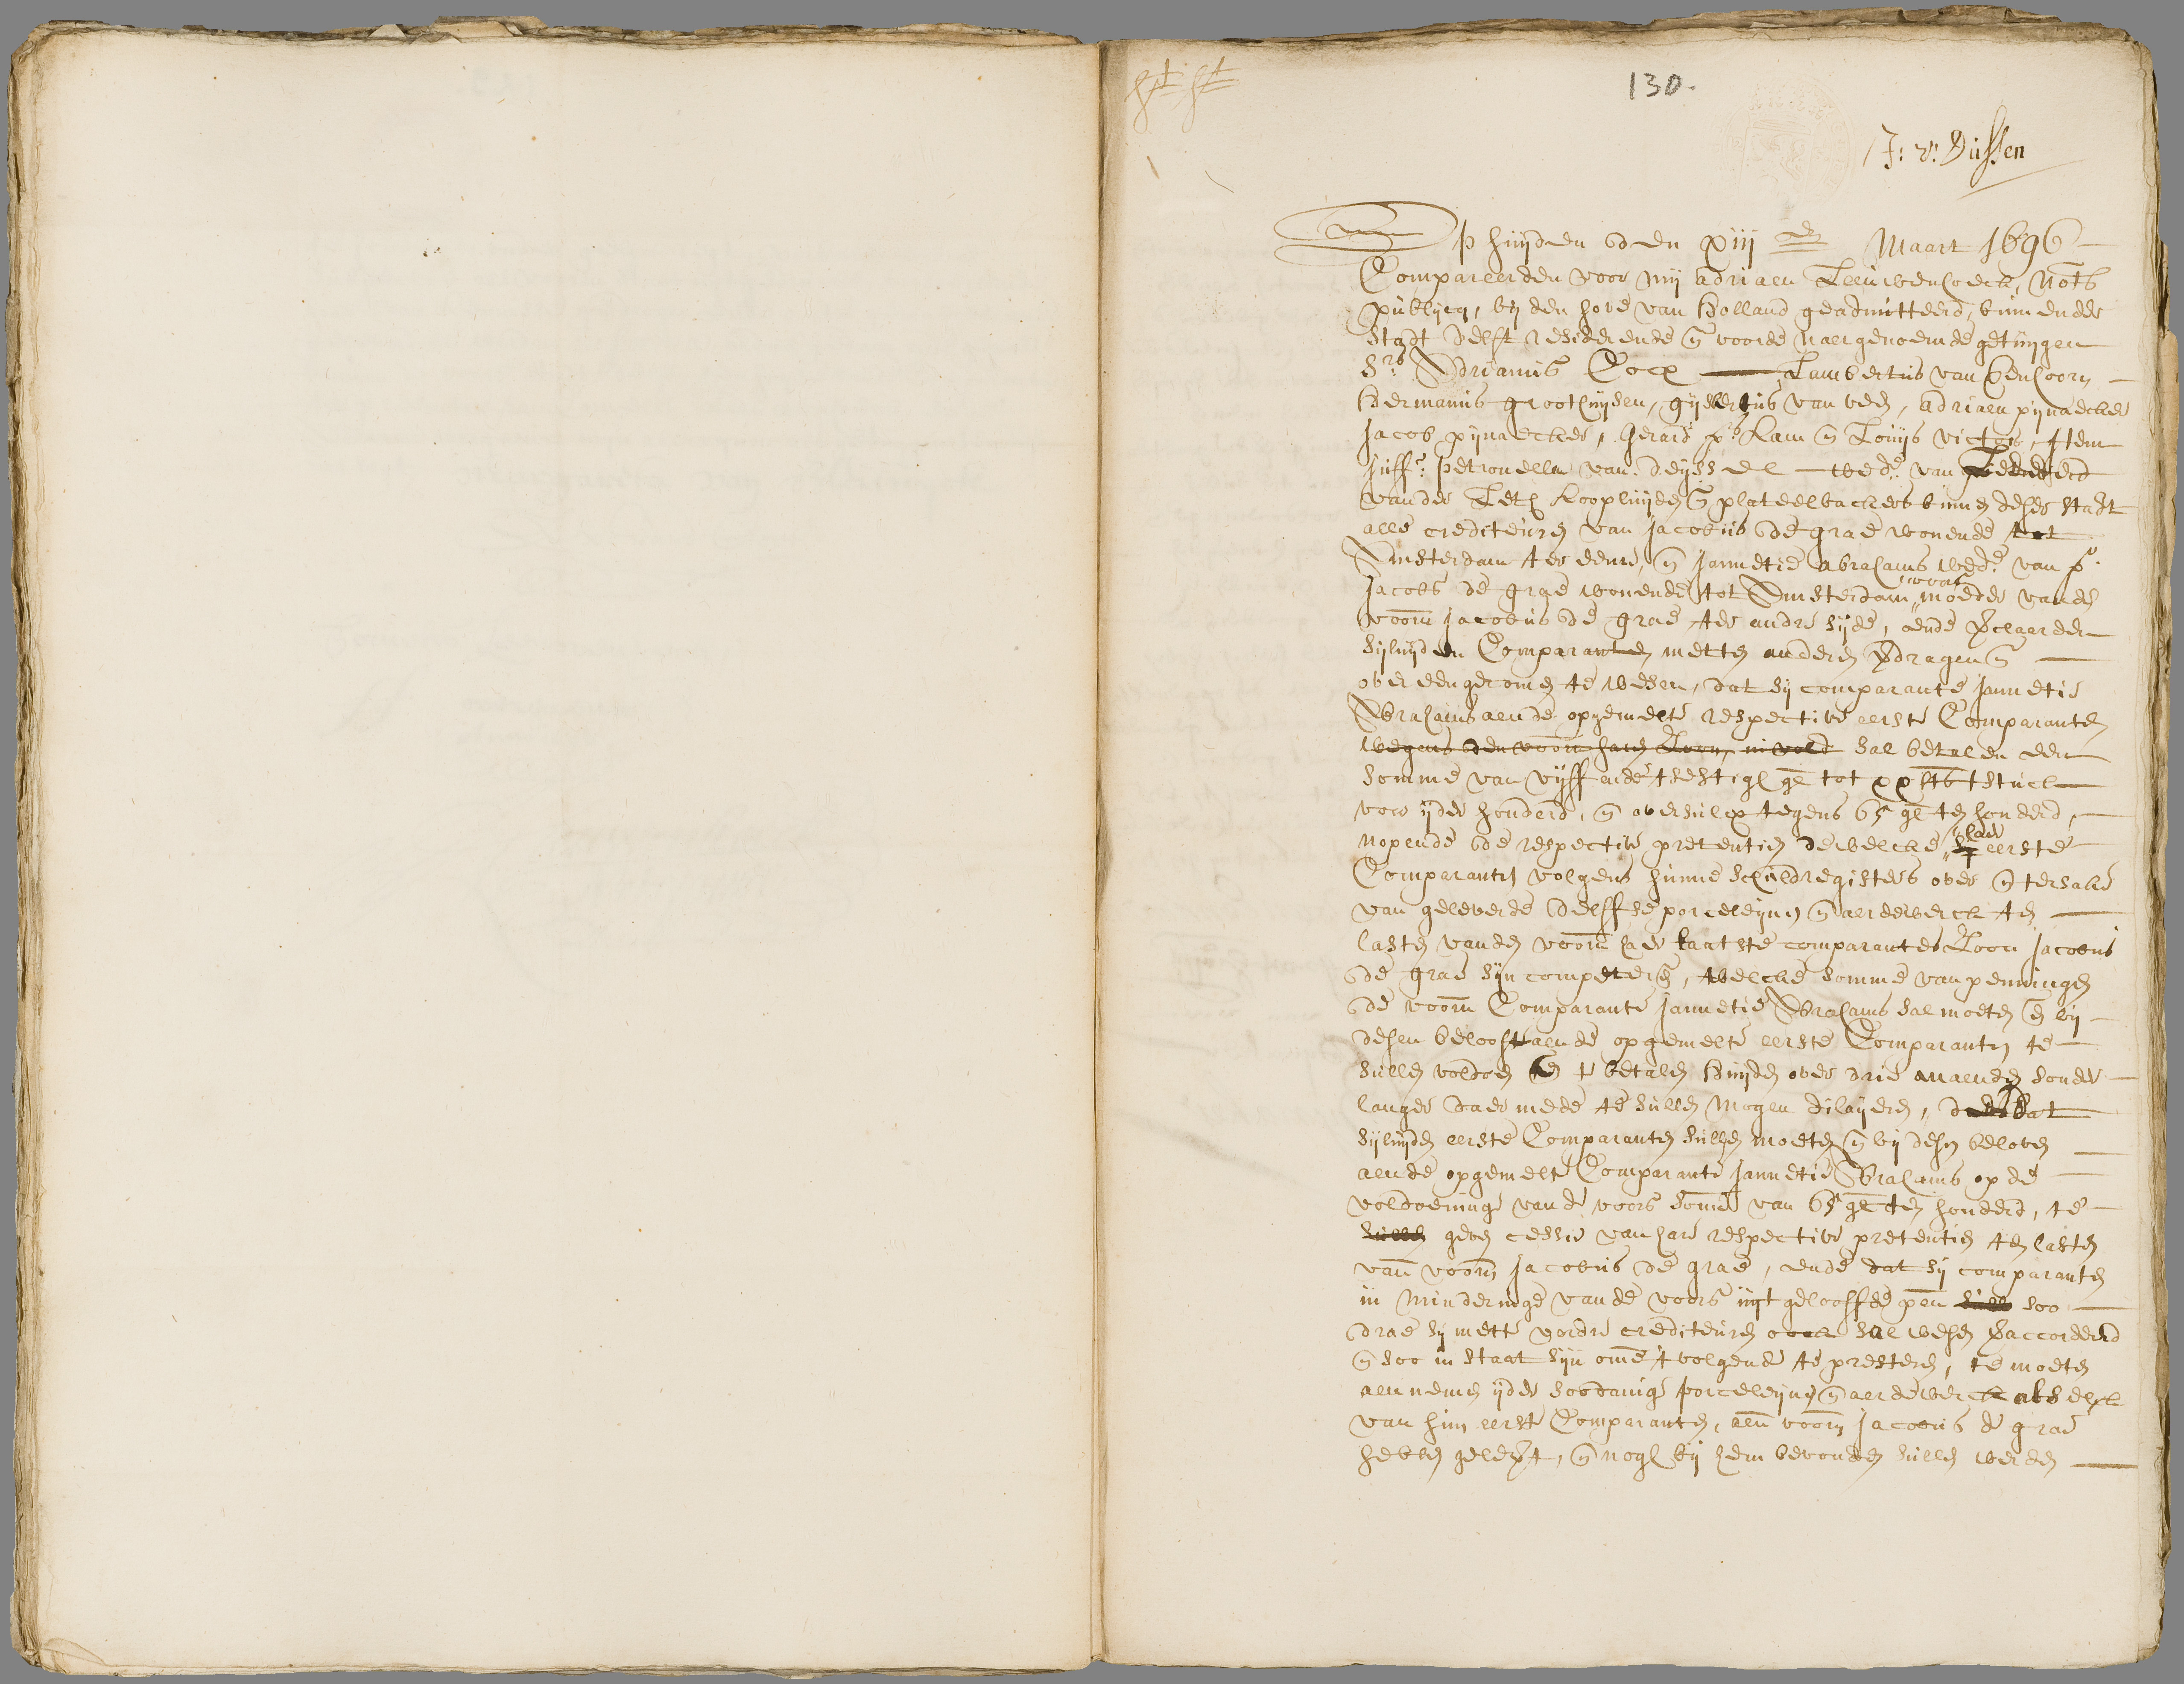 130.
J: v: Dussen
Op huijden den xiij en Maart 1696
Compareerden voor mij Adriaen Leeuwenhoeck, Nots
publijcq, bij den hove van Holland geadmitteerd, binnen der
Stadt Delft residerende en voor de naergenoemde getuijgen
Srs Adrianus Cocx Lambertus van Eenhoorn
Hermanus groothuijsen, gijsbertus van veen, adriaen pijnacker
Jacob pijnacker, Gerard ps kam en Louijs victor, Item
Juffr: Petronella van deijssel wede: van
vander Leth koopluijden en plateelbackers binnen deser stadt
alle crediteuren van Jacobus de grae wonende tot
Amsterdam ter eenre, en Jannetie abrahams wede: van
Jacobs de grae wonende tot Amsterdam moeder vanden
voorn Jacobus de grae ter andre sijde, ende verclaerden
sijluijden Comparanten metten anderen verdragen en
over eengecomen te wesen, dat sij comparante Jannetie
Abrahams aende opgemelte respective eerste Comparanten
wegens den voorn haer Zoon, sal betalen een
somme van vijff ende tsestigh gl tot xx sts tstuck
voor ijder honderd, en oversulcx tegens 65 gl ten honderd,
nopende de respective pretentien dewelcke haer eerste
Comparanten volgens hunne schuldregisters over en ter sake
van geleverde delffse porceleijnen en aerdewerck ten
lasten vanden voorn haer laatste comparantes Zoon Jacobus
de grae sijn competeren, welcke somme van penningen
de voorn Comparante Jannetie Abrahams sal moeten en bij
desen belooft aende opgemelte eerste Comparanten te
sullen voldoen en te betalen huijden over drie maenden sonder
langer daer mede te sullen mogen dilaijeren, dat
sijluijden eerste Comparanten sullen moeten en bij desen beloven
aende opgemelte Comparante Jannetie Abrahams op de
voldoeninge van de voors somme van 65 gl ten honderd, te
sullen geven cessie van hare respective pretentien ten lasten
van voorn Jacobus de grae, ende dat sij comparanten
in minderinge vande voors uijt geloofde pen soo
drae sij mette vordre crediteuren oock sal wesen veraccordeerd
en soo in staat sijn ome t volgende te presteren, te moeten
aennemen ijder soodanige porceleijnen en aerdewerck als
van hun eerste Comparanten, aen voorn Jacobus de grae
hebben gelevert, en nogh bij hem bevonden sullen werden